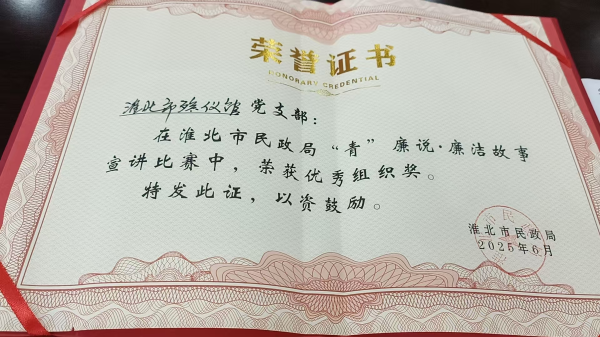 荣誉证书
HONORARY CREDENTIAL
淮北市殡仪馆党支部：
在淮北市民政局“青”廉说·廉洁故事
宣讲比赛中，荣获优秀组织奖。
特发此证，以资鼓励。
淮北市民政局
2025年6月